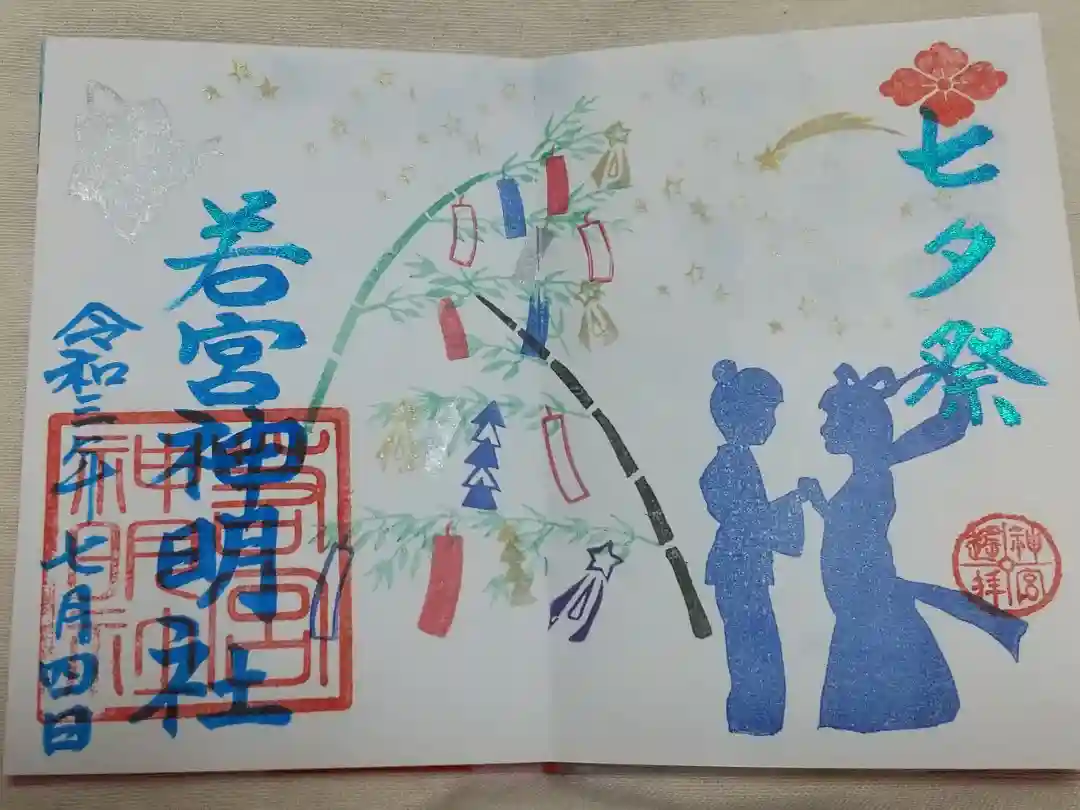 七夕祭
若宮神明社
令和三年七月四日
若宮
神明社